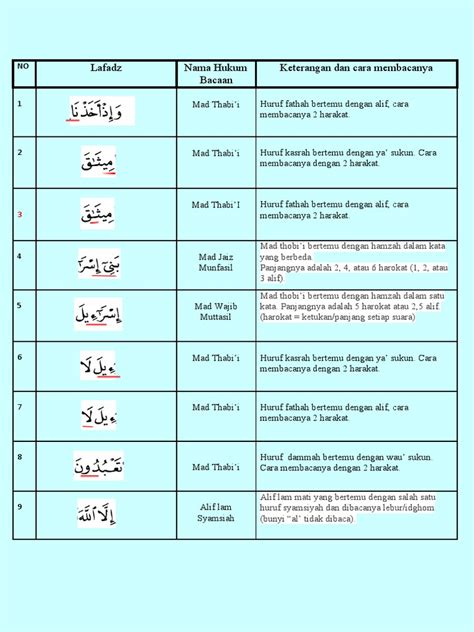 NO Lafadz Nama Hukum Bacaan Keterangan dan cara membacanya
1 وَإِذْ أَخَذْنَا Mad Thabi’i Huruf fathah bertemu dengan alif, cara
membacanya 2 harakat.
2 مِيثَٰقَ Mad Thabi’i Huruf kasrah bertemu dengan ya’ sukun. Cara
membacanya dengan 2 harakat.
3 مِيثَٰقَ Mad Thabi’I Huruf fathah bertemu dengan alif, cara
membacanya 2 harakat.
4 بَنِىٓ إِسْرَٰٓ Mad Jaiz
Munfasil
Mad thobi’i bertemu dengan hamzah dalam kata
yang berbeda
Panjangnya adalah 2, 4, atau 6 harokat (1, 2, atau
3 alif).
5 إِسْرَٰٓءِيلَ Mad Wajib
Muttasil
Mad thobi’i bertemu dengan hamzah dalam satu
kata. Panjangnya adalah 5 harokat atau 2,5 alif.
(harokat = ketukan/panjang setiap suara)
6 ءِيلَ لَا Mad Thabi’i Huruf kasrah bertemu dengan ya’ sukun. Cara
membacanya dengan 2 harakat.
7 ءِيلَ لَا Mad Thabi’i Huruf fathah bertemu dengan alif, cara
membacanya 2 harakat.
8 تَعْبُدُونَ Mad Thabi’i Huruf dammah bertemu dengan wau’ sukun.
Cara membacanya dengan 2 harakat.
9 إِلَّا ٱللَّهَ Alif lam
Syamsiah
Alif lam mati yang bertemu dengan salah satu
huruf syamsiyah dan dibacanya lebur/idghom
(bunyi “al’ tidak dibaca).